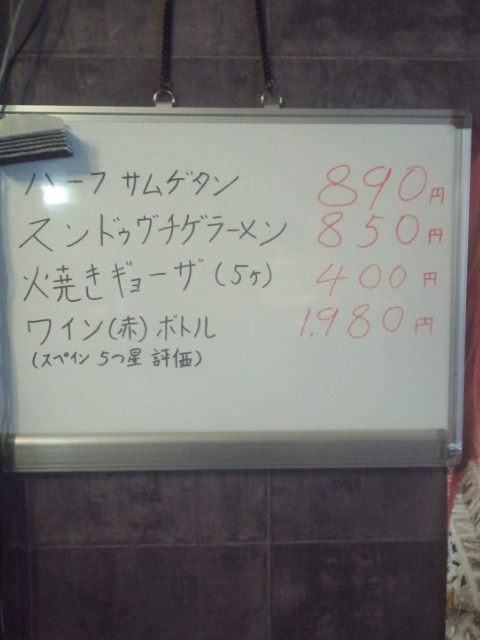 ハーフ サムゲタン 890円
スンドゥヴチゲラーメン 850円
火焼きギョーザ(5ヶ) 400円
ワイン(赤)ボトル 1.980円
(スペイン 5つ星 評価)